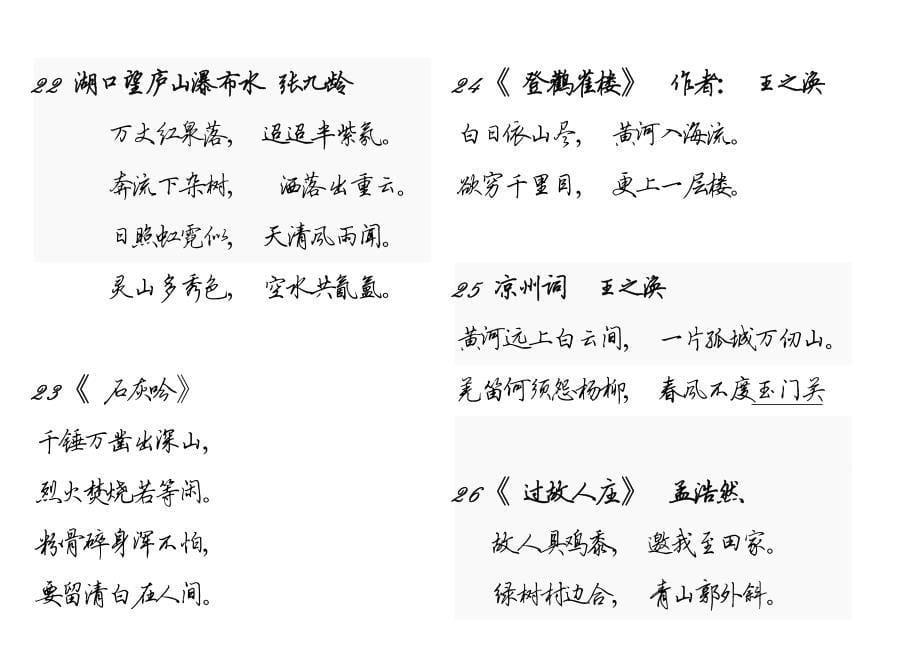 22 湖口望庐山瀑布水 张九龄
万丈红泉落， 迢迢半紫氛。
奔流下杂树， 洒落出重云。
日照虹霓似， 天清风雨闻。
灵山多秀色， 空水共氤氲。
23《 石灰吟》
千锤万凿出深山，
烈火焚烧若等闲。
粉骨碎身浑不怕，
要留清白在人间。
24《 登鹳雀楼》 作者： 王之涣
白日依山尽， 黄河入海流。
欲穷千里目， 更上一层楼。
25 凉州词 王之涣
黄河远上白云间， 一片孤城万仞山。
羌笛何须怨杨柳， 春风不度玉门关
26《 过故人庄》 孟浩然、
故人具鸡黍， 邀我至田家。
绿树村边合， 青山郭外斜。